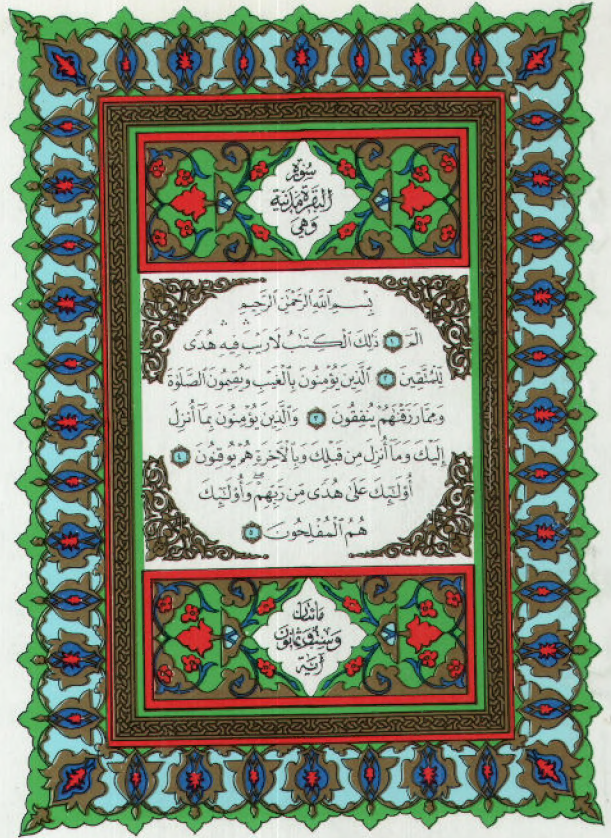 سُورَةُ
الْبَقَرَةِ مَدَنِيَّة
وَهِيَ
بِسْمِ ٱللَّهِ ٱلرَّحْمَٰنِ ٱلرَّحِيمِ
الٓمٓ ١ ذَٰلِكَ ٱلْكِتَٰبُ لَا رَيْبَ ۛ فِيهِ ۛ هُدًى
لِّلْمُتَّقِينَ ٢ ٱلَّذِينَ يُؤْمِنُونَ بِٱلْغَيْبِ وَيُقِيمُونَ ٱلصَّلَوٰةَ
وَمِمَّا رَزَقْنَٰهُمْ يُنفِقُونَ ٣ وَٱلَّذِينَ يُؤْمِنُونَ بِمَآ أُنزِلَ
إِلَيْكَ وَمَآ أُنزِلَ مِن قَبْلِكَ وَبِٱلْءَاخِرَةِ هُمْ يُوقِنُونَ ٤
أُو۟لَٰٓئِكَ عَلَىٰ هُدًى مِّن رَّبِّهِمْ ۖ وَأُو۟لَٰٓئِكَ
هُمُ ٱلْمُفْلِحُونَ ٥
مَائَتَان
وَسِتٌّ وَثَمَانُون
آيَة